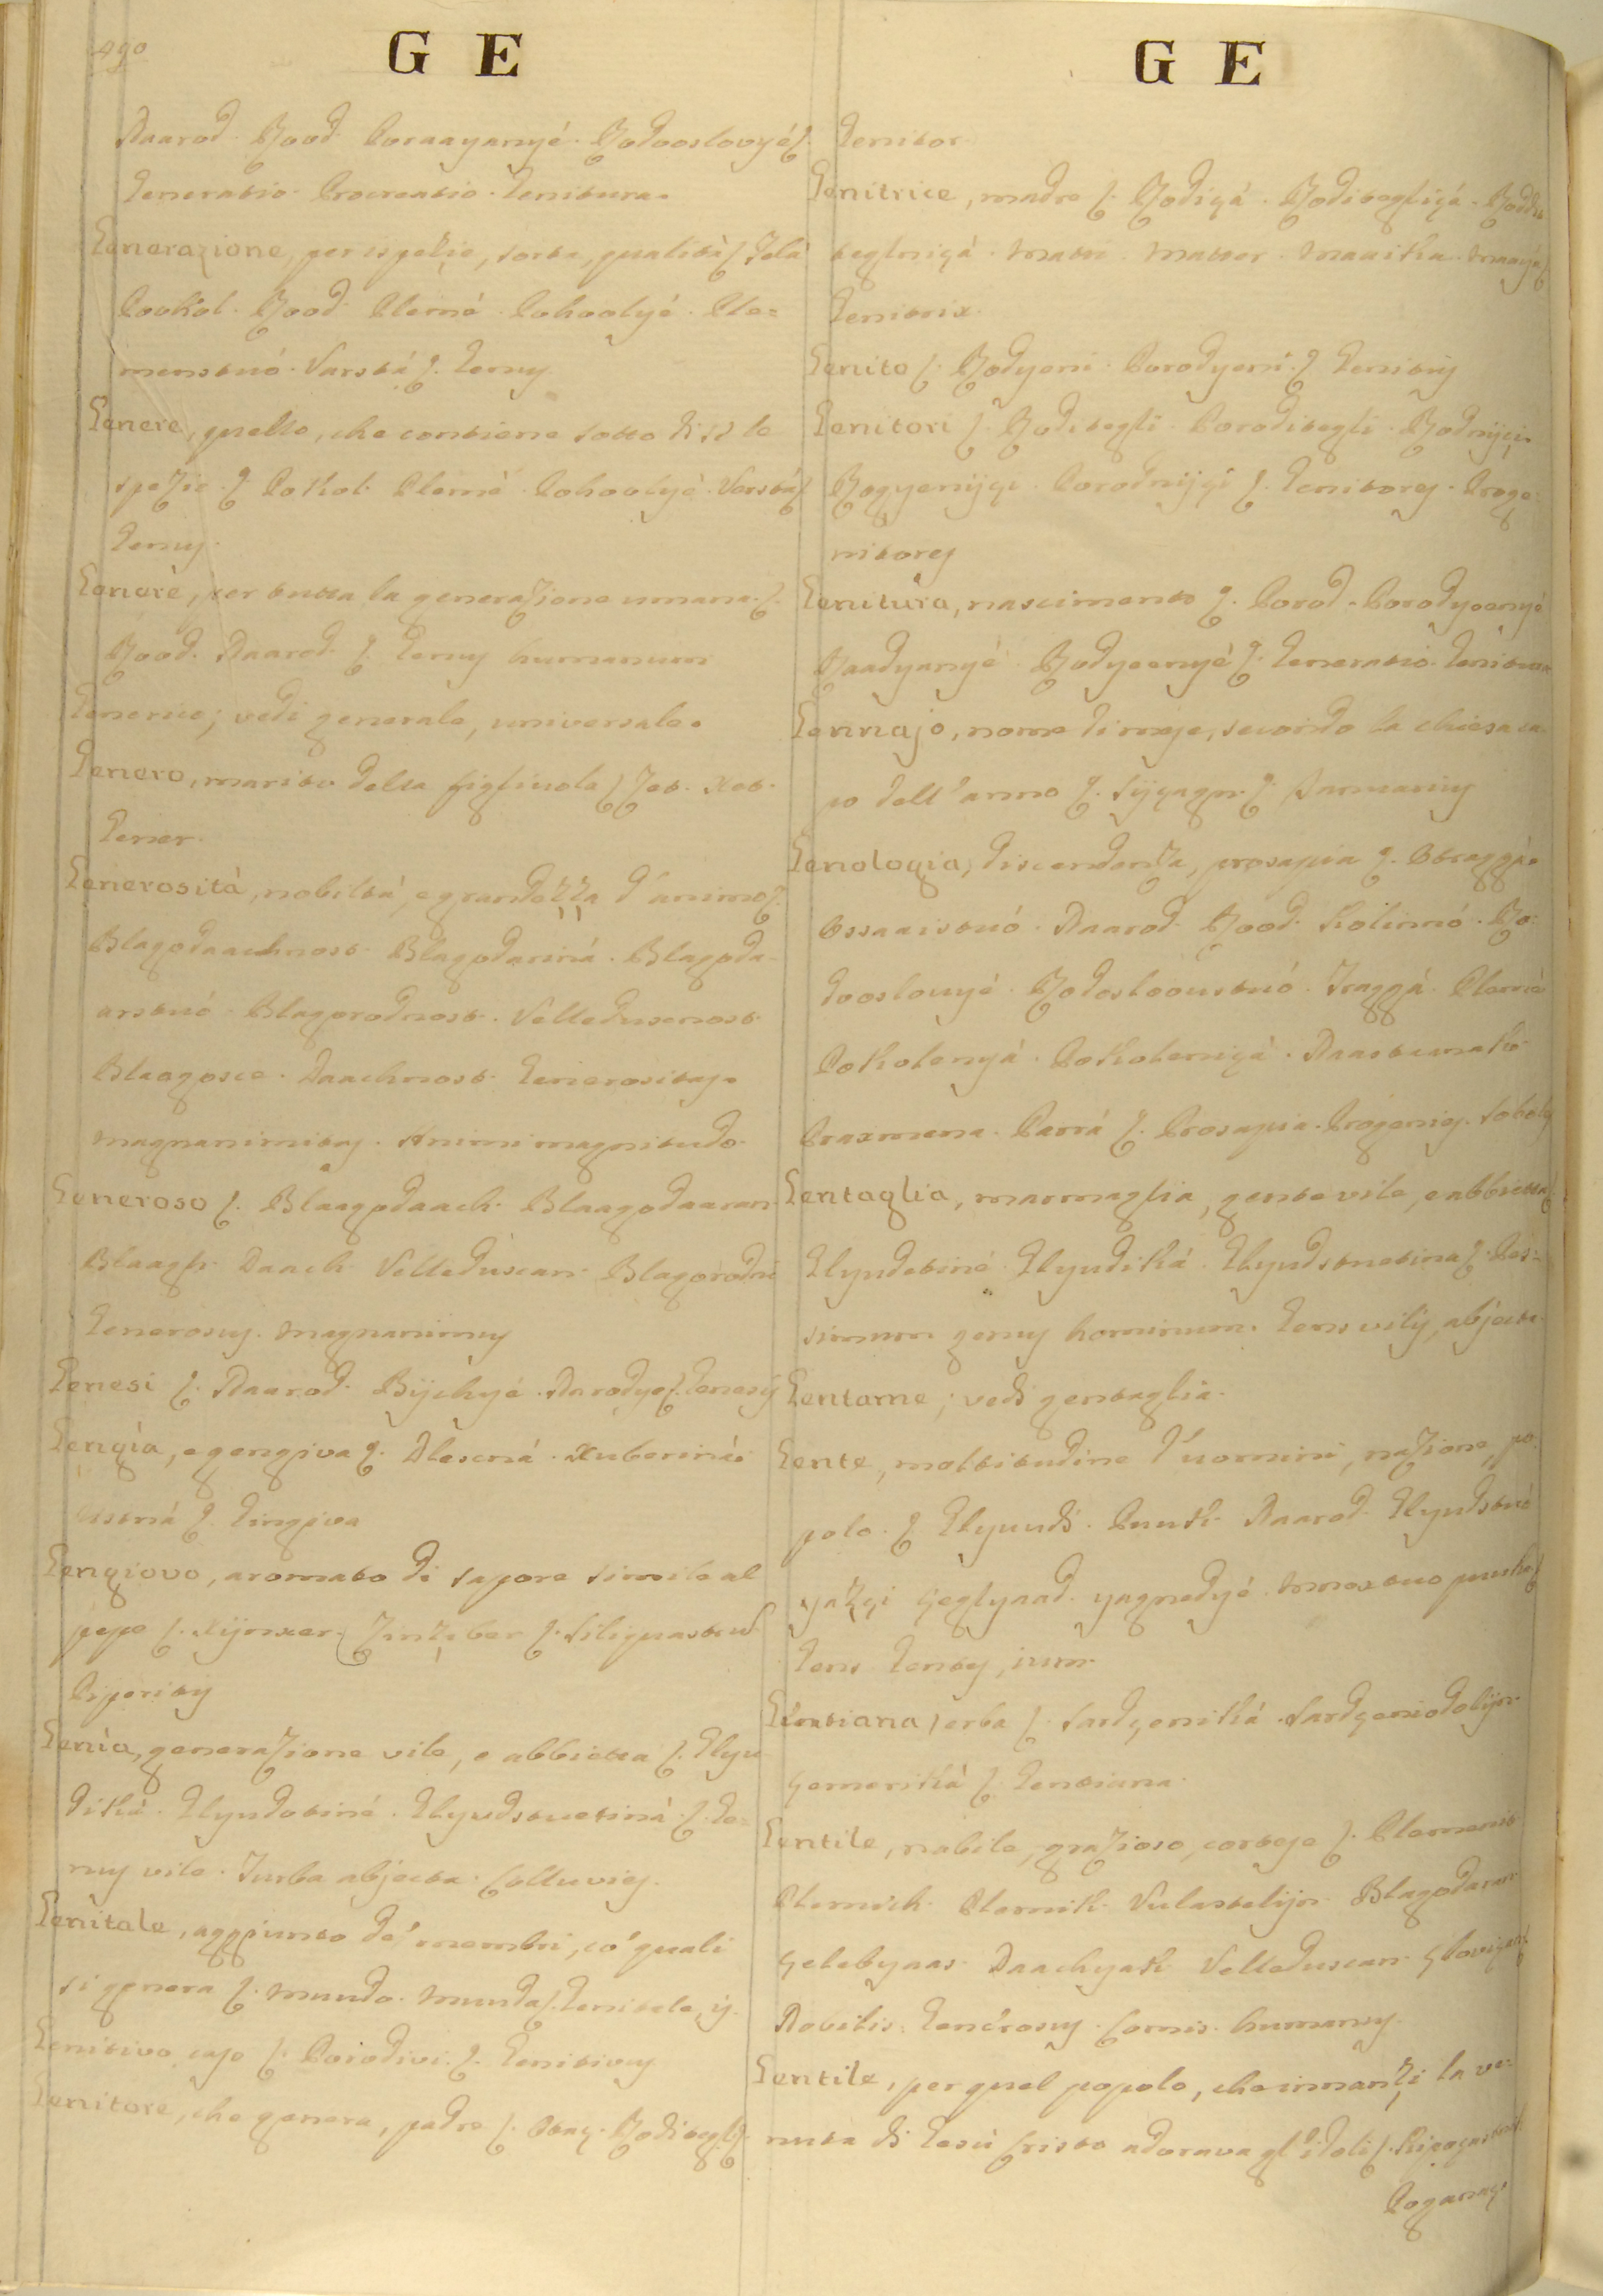 490
G E
Naarod. Rood. Poraayanyé. Rodooslovyé ſ.
Generatio. Procreatio. Genitura.
Generazione, per ispezie, sorta, qualità ſ. Felá
Pookol. Rood. Plemé. Pohoolyé. Ple=
menstvó. Varstá ſ. Genus
Genere, quello, che contiene sotto di sè le
spezie ſ. Pokol. Plemè. Pohoolyé. Varstá ſ.
Genus.
Genere, per tutta la generazione umana. ſ.
Rood. Naarod. ſ. Genus humanum
Generice; vedi generale, universale.
Genero, marito della figliuola ſ. Zet. Xet.
Gener.
Generosità, nobiltà, e grandezza d'animo ſ.
Blagodaachnost. Blagodariná. Blagoda-
arstvó. Blagorodnost. Velledusenost.
Blaagosce. Daachnost. Generositas.
Magnanimitas. Animi magnitudo.
Generoso ſ. Blaagodaach. Blaagodaaran.
Blaagh. Daach. Velledùscan. Blagorodni
Generosus. Magnanimus
Genesi ſ. Naarod. Bijchyé. Narodye ſ. Genesis
Gengìa, e gengiva ſ. Dlescná. Xuberiná.
Ustná ſ. Gingiva
Gengiovo, aromato di sapore simile al
pepe ſ. Xijnxer. Zinziber ſ. Siliquastrum
Piperitis
Genìa, generazione vile, e abbietta ſ. Glyu
diká. Glyudetiné. Glyudstvetiná. ſ. Ge=
nus vile. Turba abjecta. Colluvies.
Genitale, aggiunto de' membri, co' quali
si genera ſ. Muudo. Muuda ſ. Genitale, is.
Genitivo caso ſ. Porodivi. ſ. Genitivus
Genitore, che genera, padre ſ. Otaç. Roditegl ſ.
G E
Genitor.
Genitrice, madre ſ. Rodiçá. Roditegliçá. Rodi-
teglniçá. Matti. Matter. Maaika. Maayá ſ.
Genitrix.
Genito ſ. Rodyeni. Porodyeni. ſ. Genitus
Genitori ſ. Roditegli. Poroditegli. Rodnijçi.
Rogyenijçi. Porodnijçi ſ. Genitores. Proge-
nitores
Genitura, nascimento ſ. Porod. Porodyeenyé
Raadyanyé. Rodyeenyé ſ. Generatio. Genitura
Gennajo, nome di mese, secondo la chiesa ca-
po dell'anno ſ. Sijçagn. ſ. Januarius
Genologia, discendenza, prosapia ſ. Otraggá.
Ossaaistvó. Naarod. Rood. Kolinnó. Ro-
dooslovyé. Rodosloovstvó. Traggá. Plemé
Pokolenyá. Pokoleniçá. Naastavakó.
Praxmena. Parrá ſ. Prosapia. Progenies. Soboles
Gentaglia, marmaglia, gente vile, e abbietta ſ.
Glyudetiné. Glyudiká. Glyudstvetina ſ. Pes=
simum genus hominum. Gens vilis, abjecta.
Gentame; vedi gentaglia.
Gente, moltitudine d'uomini, nazione, po-
polo. ſ. Glyuudi. Puuk. Naarod. Glyudstvó
yazçi çeglyaad. yagnedyé. Mnoxtvo puuka ſ.
Gens Gentis, ium.
Gentiana, erba ſ. Sardçeniká. Sardçeniodelijn.
çemeriká ſ. Gentiana.
Gentile, nobile, grazioso, cortese ſ. Plemenit.
Plemich. Plemik. Vulastelijn. Blagodaran.
çelebyaas. Daachyak. Velleduscan. çloviçan ſ.
Nobilis. Generosus. Comis. Humanus.
Gentile, per quel popolo, che innanzi la ve=
nuta di Gesù Cristo adorava gl'idoli ſ.
Poganaç.